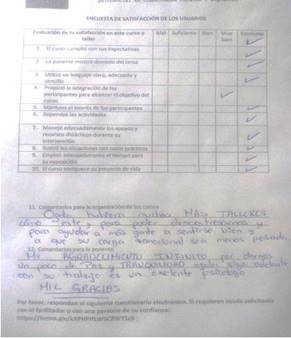 ENCUESTA DE SATISFACCIÓN DE LOS USUARIOS
Evaluación de tu satisfacción en este curso o taller
Mal Suficiente Bien Muy bien Excelente
1. El curso cumplió con tus expectativas
2. La ponente mostró dominio del tema
3. Utilizó un lenguaje claro, adecuado y sencillo
4. Propició la integración de los
participantes para alcanzar el objetivo del
curso
5. Mantuvo el interés de los participantes
6. Dispensó las actividades
7. Manejó adecuadamente los apoyos y
recursos didácticos durante su
intervención
8. Ilustró las situaciones con casos prácticos
9. Empleó adecuadamente el tiempo para
su exposición
10. El curso enriquece su proyecto de vida
11. Comentarios para la organización de los cursos
Ojalá hubiera muchos MAS TALLERES
como este, para
para ayudar a más gente a sentirse bien y
a que su carga emocional sea menos pesada
12. Comentarios para la ponente
Mi AGRADECIMIENTO INFINITO, por darnos
un poco de PAZ y TRANQUILIDAD adelante
con su trabajo es un excelente psicólogo
MIL GRACIAS
Por favor, respondan el siguiente cuestionario electrónico. Si requieren ayuda solicítenla
con el facilitador o con una persona de su confianza: